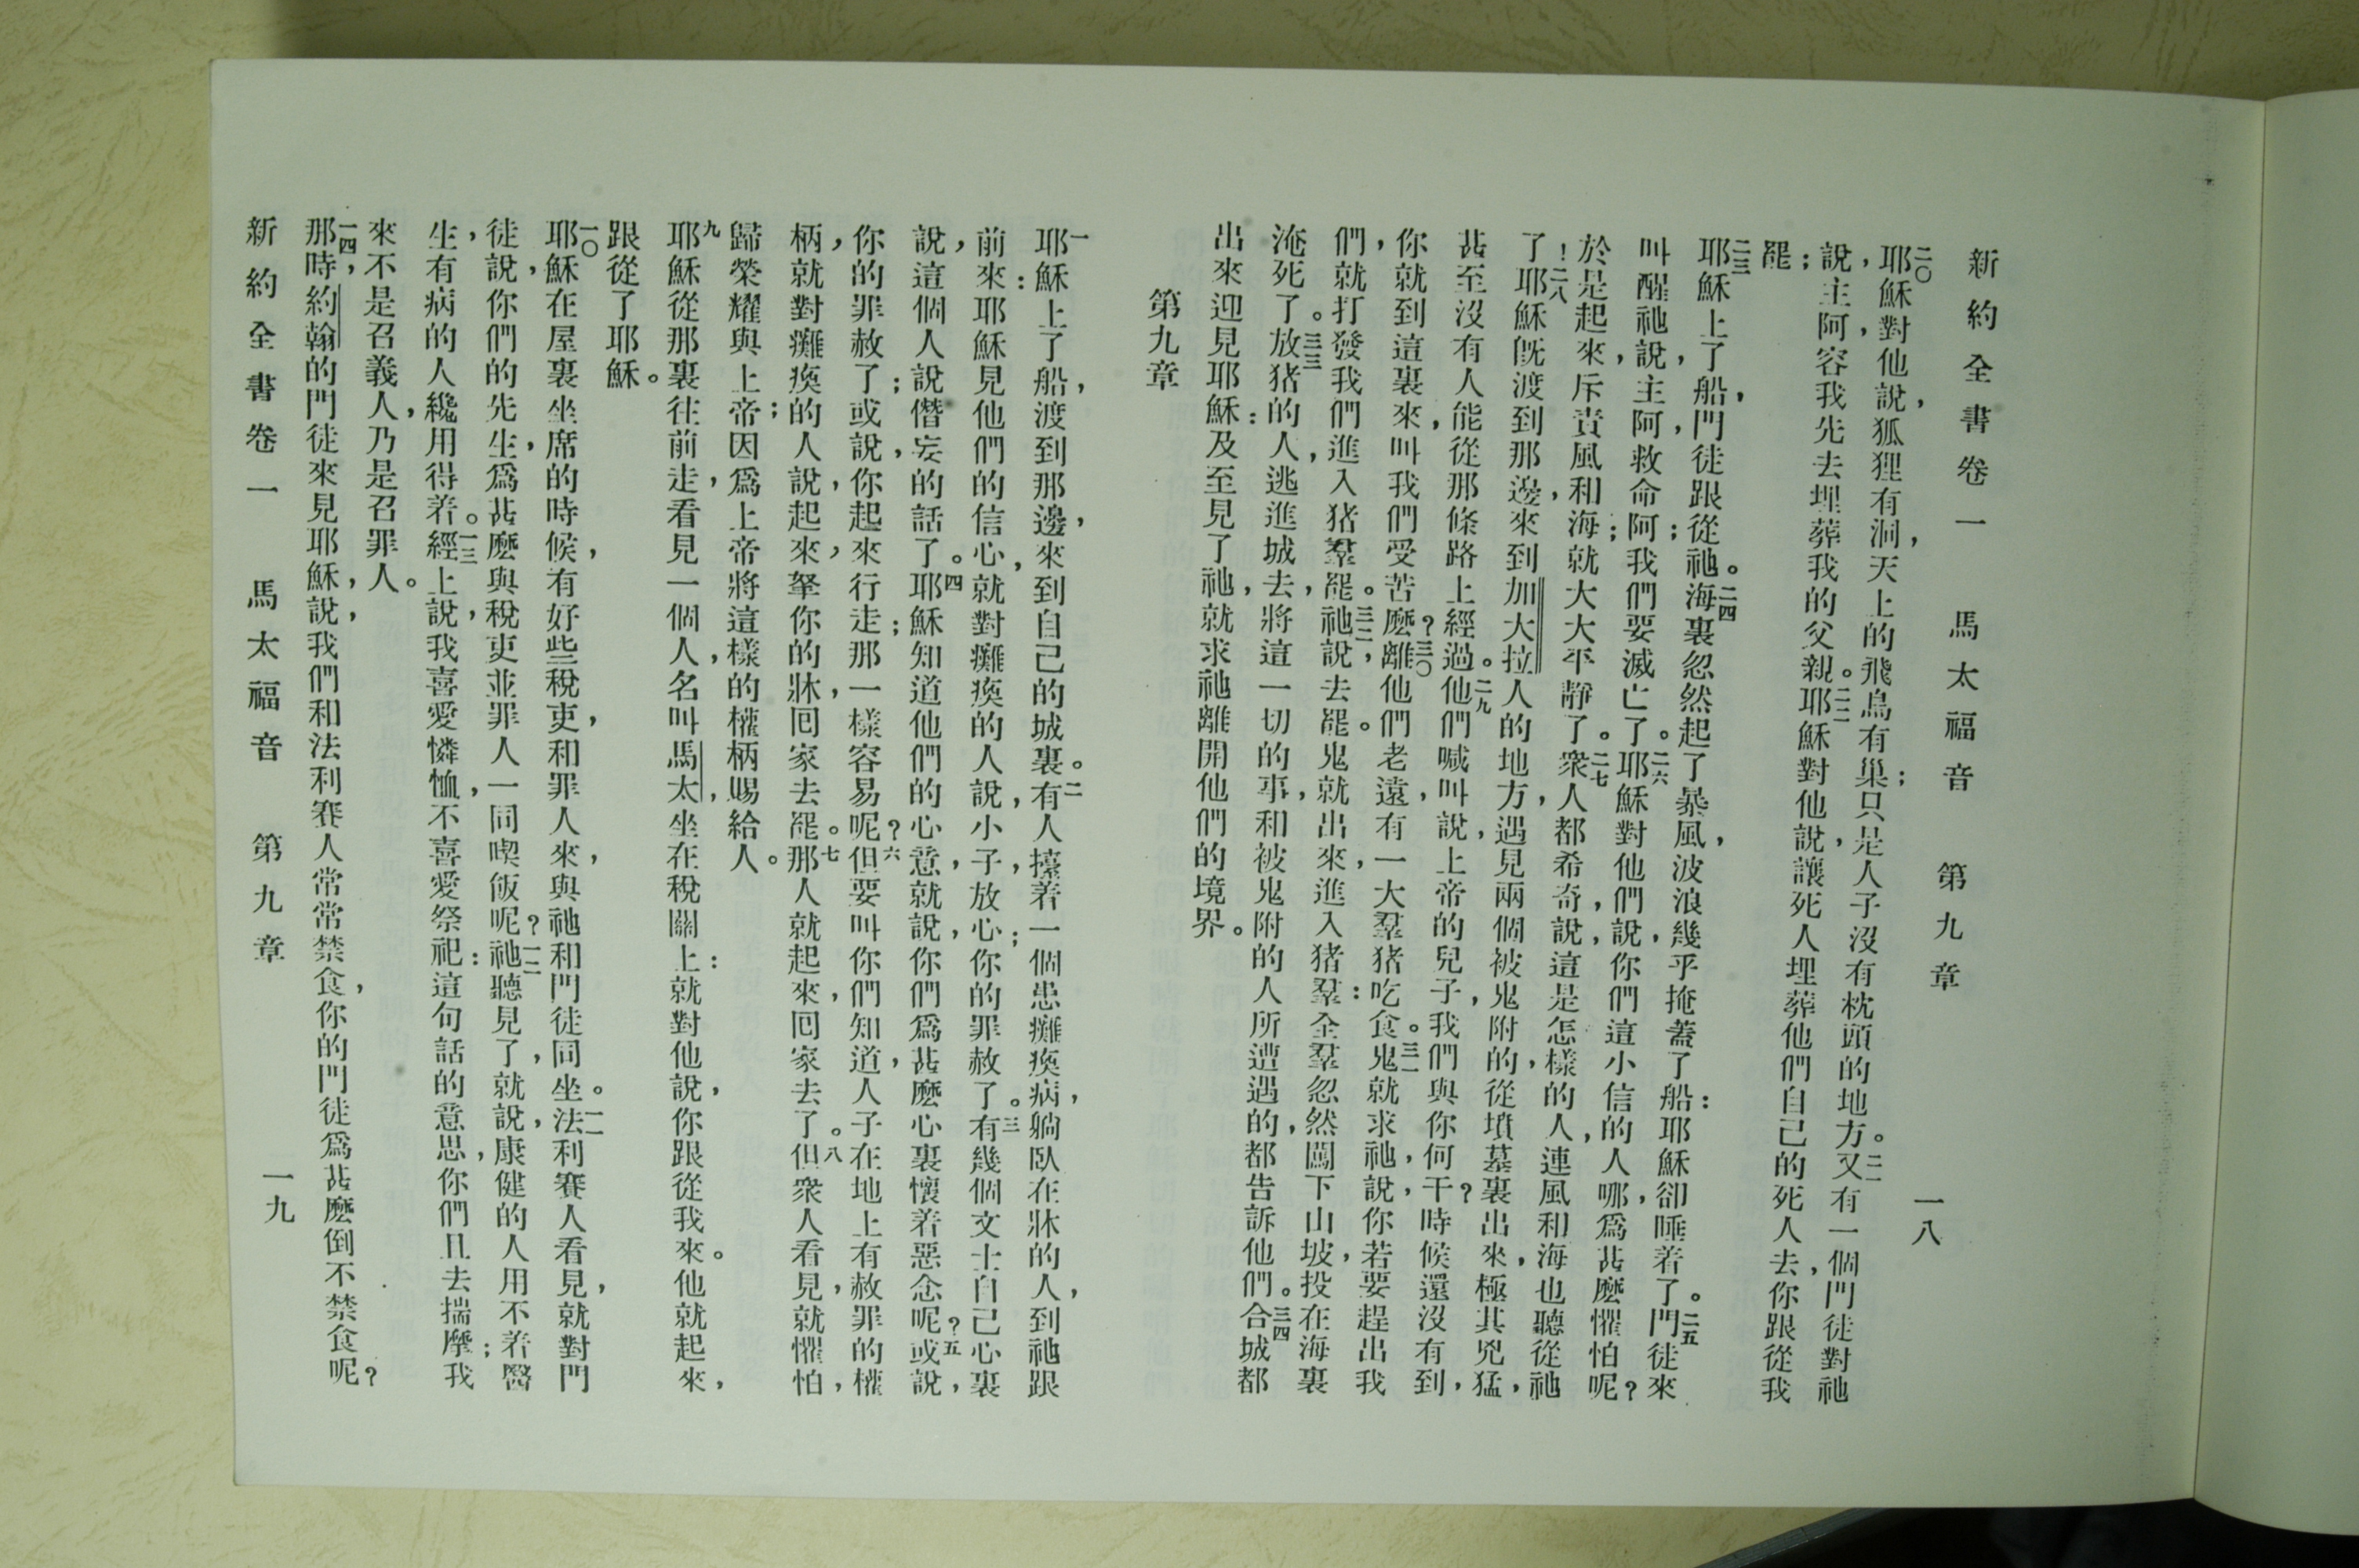 新約全書卷一 馬太福音 第九章 一八
二〇耶穌對他說，狐狸有洞，天上的飛鳥有巢；只是人子沒有枕頭的地方。二一又有一個門徒對祂
說，主阿，容我先去埋葬我的父親。二二耶穌對他說，讓死人埋葬他們自己的死人去，你跟從我
罷；
二三耶穌上了船，門徒跟從祂。二四海裏忽然起了暴風，波浪幾乎掩蓋了船：耶穌卻睡着了。二五門徒來
叫醒祂，說，主阿，救命阿；我們要滅亡了。二六耶穌對他們說，你們這小信的人哪，爲甚麼懼怕呢？
於是起來，斥責風和海；就大大平靜了。二七衆人都希奇，說，這是怎樣的人，連風和海也聽從祂
了！二八耶穌旣渡到那邊，來到加大拉人的地方，遇見兩個被鬼附的，從墳墓裏出來，極其兇猛，
甚至沒有人能從那條路上經過。二九他們喊叫說，上帝的兒子，我們與你何干？時候還沒有到，
你就到這裏來，叫我們受苦麼？三〇離他們老遠，有一大羣猪吃食。三一鬼就求祂，說，你若要趕出我
們，就打發我們進入猪羣罷。三二祂說，去罷。鬼就出來，進入猪羣：全羣忽然闖下山坡，投在海裏
淹死了。三三放猪的人，逃進城去，將這一切的事，和被鬼附的人所遭遇的，都告訴他們。三四合城都
出來迎見耶穌：及至見了祂，就求祂離開他們的境界。
第九章
一耶穌上了船，渡到那邊，來到自己的城裏。二有人擡着一個患癱瘓病，躺臥在牀的人，到祂跟
前來：耶穌見他們的信心，就對癱瘓的人說，小子，放心；你的罪赦了。三有幾個文士自己心裏
說，這個人說僭妄的話了。四耶穌知道他們的心意，就說，你們爲甚麼心裏懷着惡念呢？五或說，
你的罪赦了；或說，你起來行走；那一樣容易呢？六但要叫你們知道，人子在地上有赦罪的權
柄，就對癱瘓的人說，起來，拏你的牀，囘家去罷。七那人就起來，囘家去了。八但衆人看見，就懼怕，
歸榮耀與上帝；因爲上帝將這樣的權柄，賜給人。
九耶穌從那裏往前走，看見一個人，名叫馬太，坐在稅關上：就對他說，你跟從我來。他就起來，
跟從了耶穌。
一〇耶穌在屋裏坐席的時候，有好些稅吏，和罪人來，與祂和門徒同坐。一一法利賽人看見，就對門
徒說，你們的先生，爲甚麼與稅吏並罪人一同喫飯呢？一二祂聽見了，就說，康健的人用不着醫
生，有病的人纔用得着。一三經上說，我喜愛憐恤，不喜愛祭祀：這句話的意思，你們且去揣摩；我
來不是召義人，乃是召罪人。
一四那時，約翰的門徒來見耶穌，說，我們和法利賽人常常禁食，你的門徒爲甚麼倒不禁食呢？
新約全書卷一 馬太福音 第九章 一九